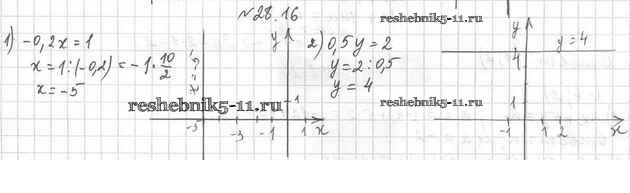 №28.16
1) -0,2x = 1
x = 1:(-0,2) = -1·10/2
x = -5
x = -5
y
1
-5 -3 -1 1 x
2) 0,5y = 2
y = 2:0,5
y = 4
y
y = 4
4
1
-1 1 2 x
reshebnik5-11.ru
reshebnik5-11.ru
reshebnik5-11.ru